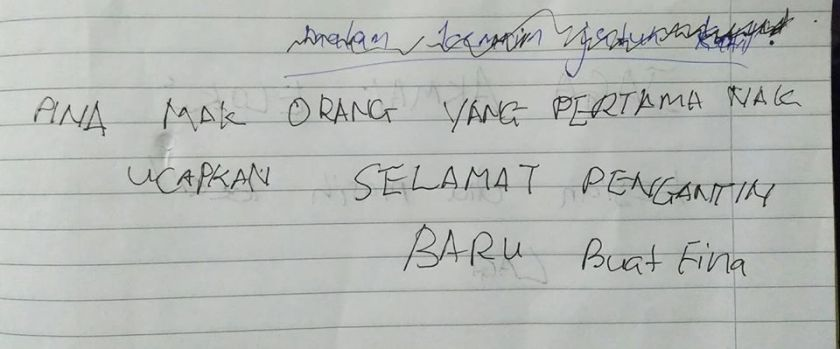 PINA MAK ORANG YANG PERTAMA NAK
UCAPKAN SELAMAT PENGANTIN
BARU Buat Eina